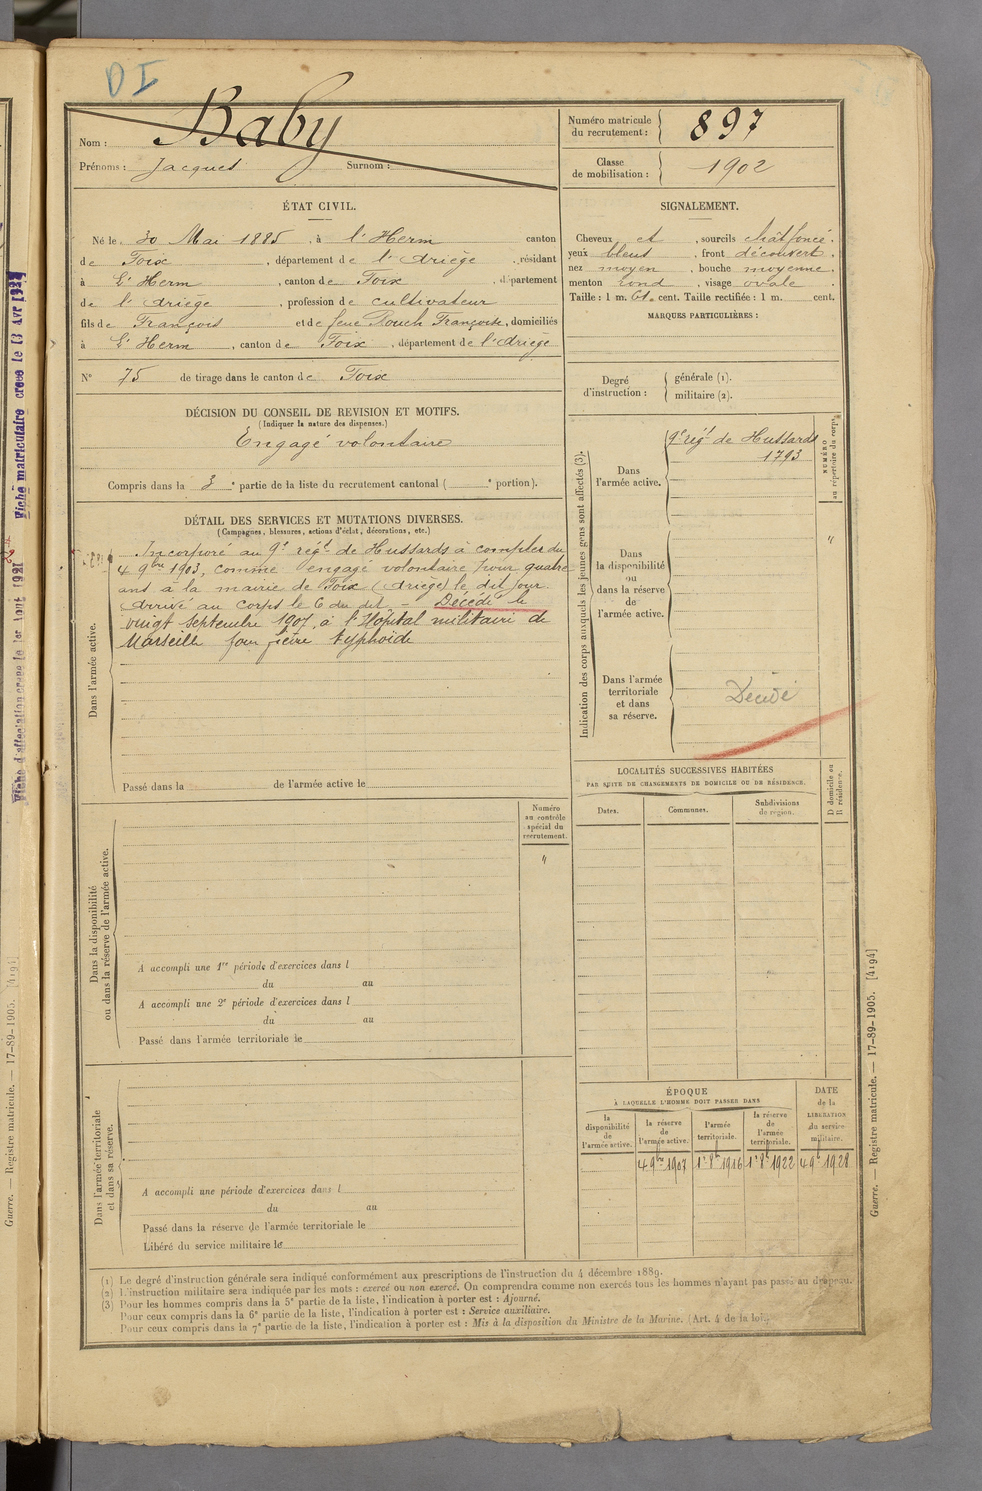 DI
Nom : Baby
Prénoms : Jacques Surnom :
Numéro matricule du recrutement : 897
Classe de mobilisation : 1902
ÉTAT CIVIL.
Né le 30 Mai 1885, à l'Herm canton
de Foix, département de l'Ariège, résidant
à L'Herm, canton de Foix, département
de l'Ariège, profession de cultivateur
fils de François et de feue Rouch Françoise, domiciliés
à L'Herm, canton de Foix, département de l'Ariège
N° 75 de tirage dans le canton de Foix
SIGNALEMENT.
Cheveux et, sourcils chât foncé.
yeux bleus, front découvert.
nez moyen, bouche moyenne.
menton rond, visage ovale.
Taille : 1 m. 61 cent. Taille rectifiée : 1 m. cent.
MARQUES PARTICULIÈRES :
Degré d'instruction : générale (1).
militaire (2).
DÉCISION DU CONSEIL DE REVISION ET MOTIFS.
(Indiquer la nature des dispenses.)
Engagé volontaire
Compris dans la 3e partie de la liste du recrutement cantonal ( e portion).
DÉTAIL DES SERVICES ET MUTATIONS DIVERSES.
(Campagnes, blessures, actions d'éclat, décorations, etc.)
Dans l'armée active.
Incorporé au 9e régt de Hussards à compter du
4 9bre 1903, comme engagé volontaire pour quatre
ans à la mairie de Foix (Ariège) le dit jour.
Arrivé au corps le 6 du dit – Décédé le
vingt septembre 1907, à l'Hôpital militaire de
Marseille pour fièvre typhoïde
Passé dans la de l'armée active le
Indication des corps auxquels les jeunes gens sont affectés (3).
Dans l'armée active.
9e régt de Hussards
1793
NUMÉRO au répertoire du corps.
"
Dans la disponibilité ou dans la réserve de l'armée active.
Dans l'armée territoriale et dans sa réserve.
Décédé
LOCALITÉS SUCCESSIVES HABITÉES
PAR SUITE DE CHANGEMENTS DE DOMICILE OU DE RÉSIDENCE.
Dates. Communes. Subdivisions de région.
D domicile ou R résidence.
Numéro au contrôle spécial du recrutement.
"
Dans la disponibilité ou dans la réserve de l'armée active.
A accompli une 1re période d'exercices dans l
du au
A accompli une 2e période d'exercices dans l
du au
Passé dans l'armée territoriale le
Dans l'armée territoriale et dans sa réserve.
A accompli une période d'exercices dans l
du au
Passé dans la réserve de l'armée territoriale le
Libéré du service militaire le
ÉPOQUE
À LAQUELLE L'HOMME DOIT PASSER DANS
la disponibilité de l'armée active.
la réserve de l'armée active.
l'armée territoriale.
la réserve de l'armée territoriale.
DATE de la LIBÉRATION du service militaire.
4 9bre 1907 1er 8bre 1916 1er 8bre 1922 4 9bre 1928
(1) Le degré d'instruction générale sera indiqué conformément aux prescriptions de l'instruction du 4 décembre 1889.
(2) L'instruction militaire sera indiquée par les mots : exercé ou non exercé. On comprendra comme non exercés tous les hommes n'ayant pas passé au drapeau.
(3) Pour les hommes compris dans la 5e partie de la liste, l'indication à porter est : Ajourné.
Pour ceux compris dans la 6e partie de la liste, l'indication à porter est : Service auxiliaire.
Pour ceux compris dans la 7e partie de la liste, l'indication à porter est : Mis à la disposition du Ministre de la Marine. (Art. 4 de la loi.)
Guerre. — Registre matricule. — 17-89-1905. [4194]
Guerre. — Registre matricule. — 17-89-1905. [4194]
Fiche matriculaire créée le 13 Avr 192
Fiche d'affectation créée le 1er Août 1921